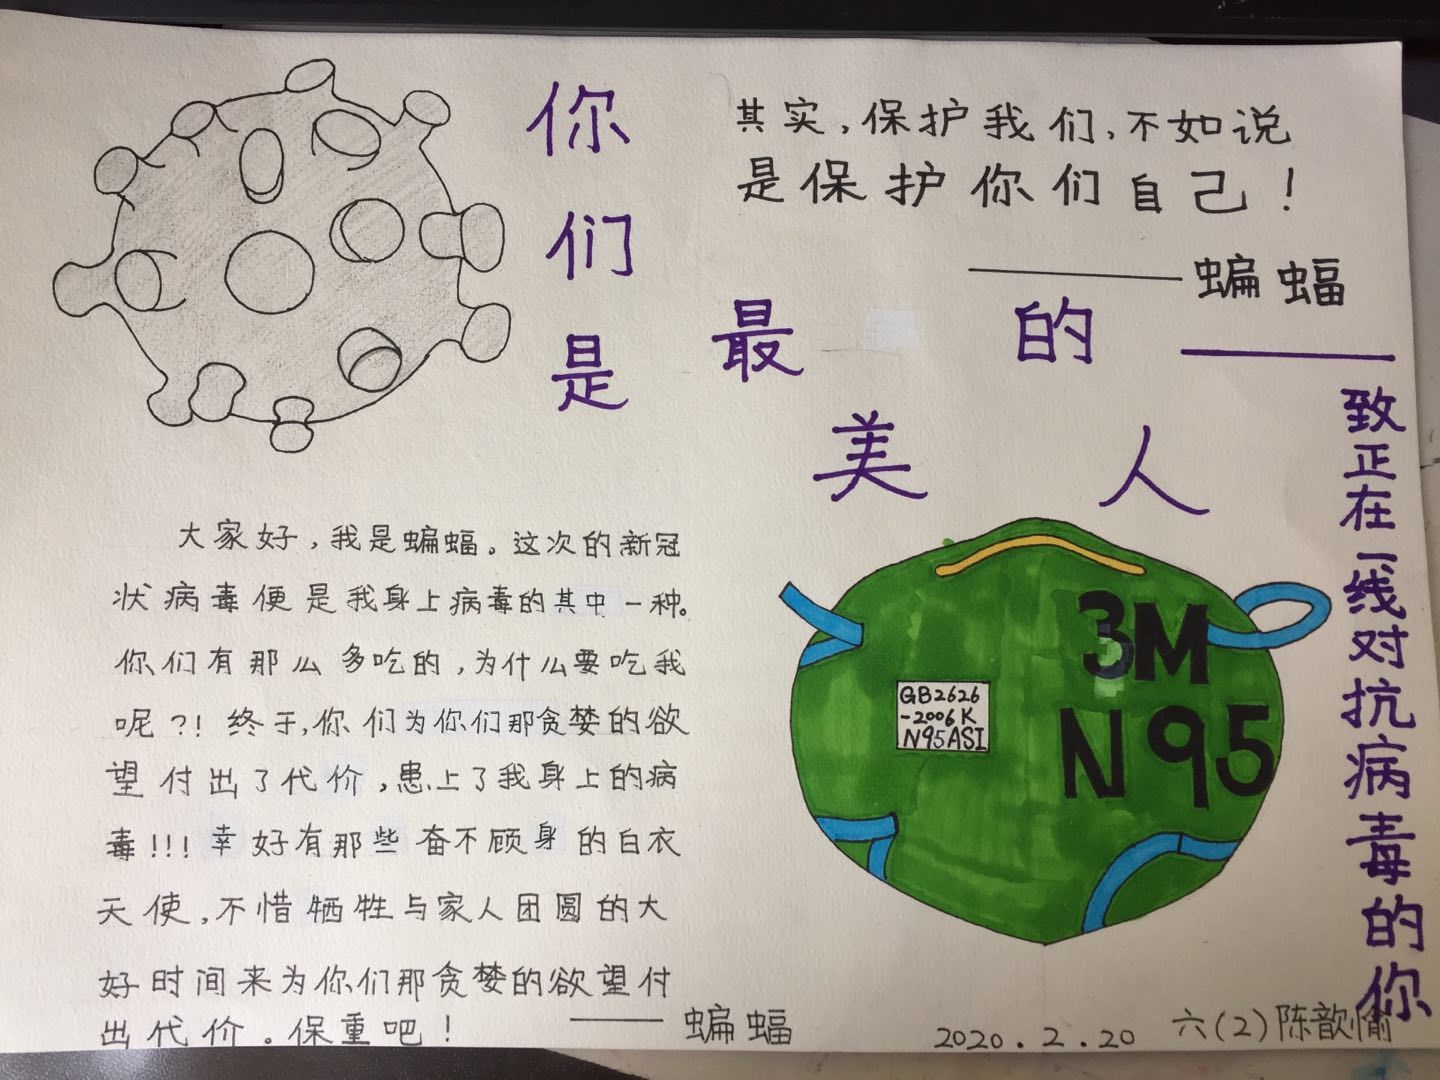 你们是
最美的人
其实，保护我们，不如说
是保护你们自己！
——蝙蝠
——致正在一线对抗病毒的你
大家好，我是蝙蝠。这次的新冠
状病毒便是我身上病毒的其中一种。
你们有那么多吃的，为什么要吃我
呢？！终于，你们为你们那贪婪的欲
望付出了代价，患上了我身上的病
毒！！！幸好有那些奋不顾身的白衣
天使，不惜牺牲与家人团圆的大
好时间来为你们那贪婪的欲望付
出代价。保重吧！
——蝙蝠
3M
N95
GB2626
-2006K
N95ASI
2020.2.20
六(2)陈歆愉